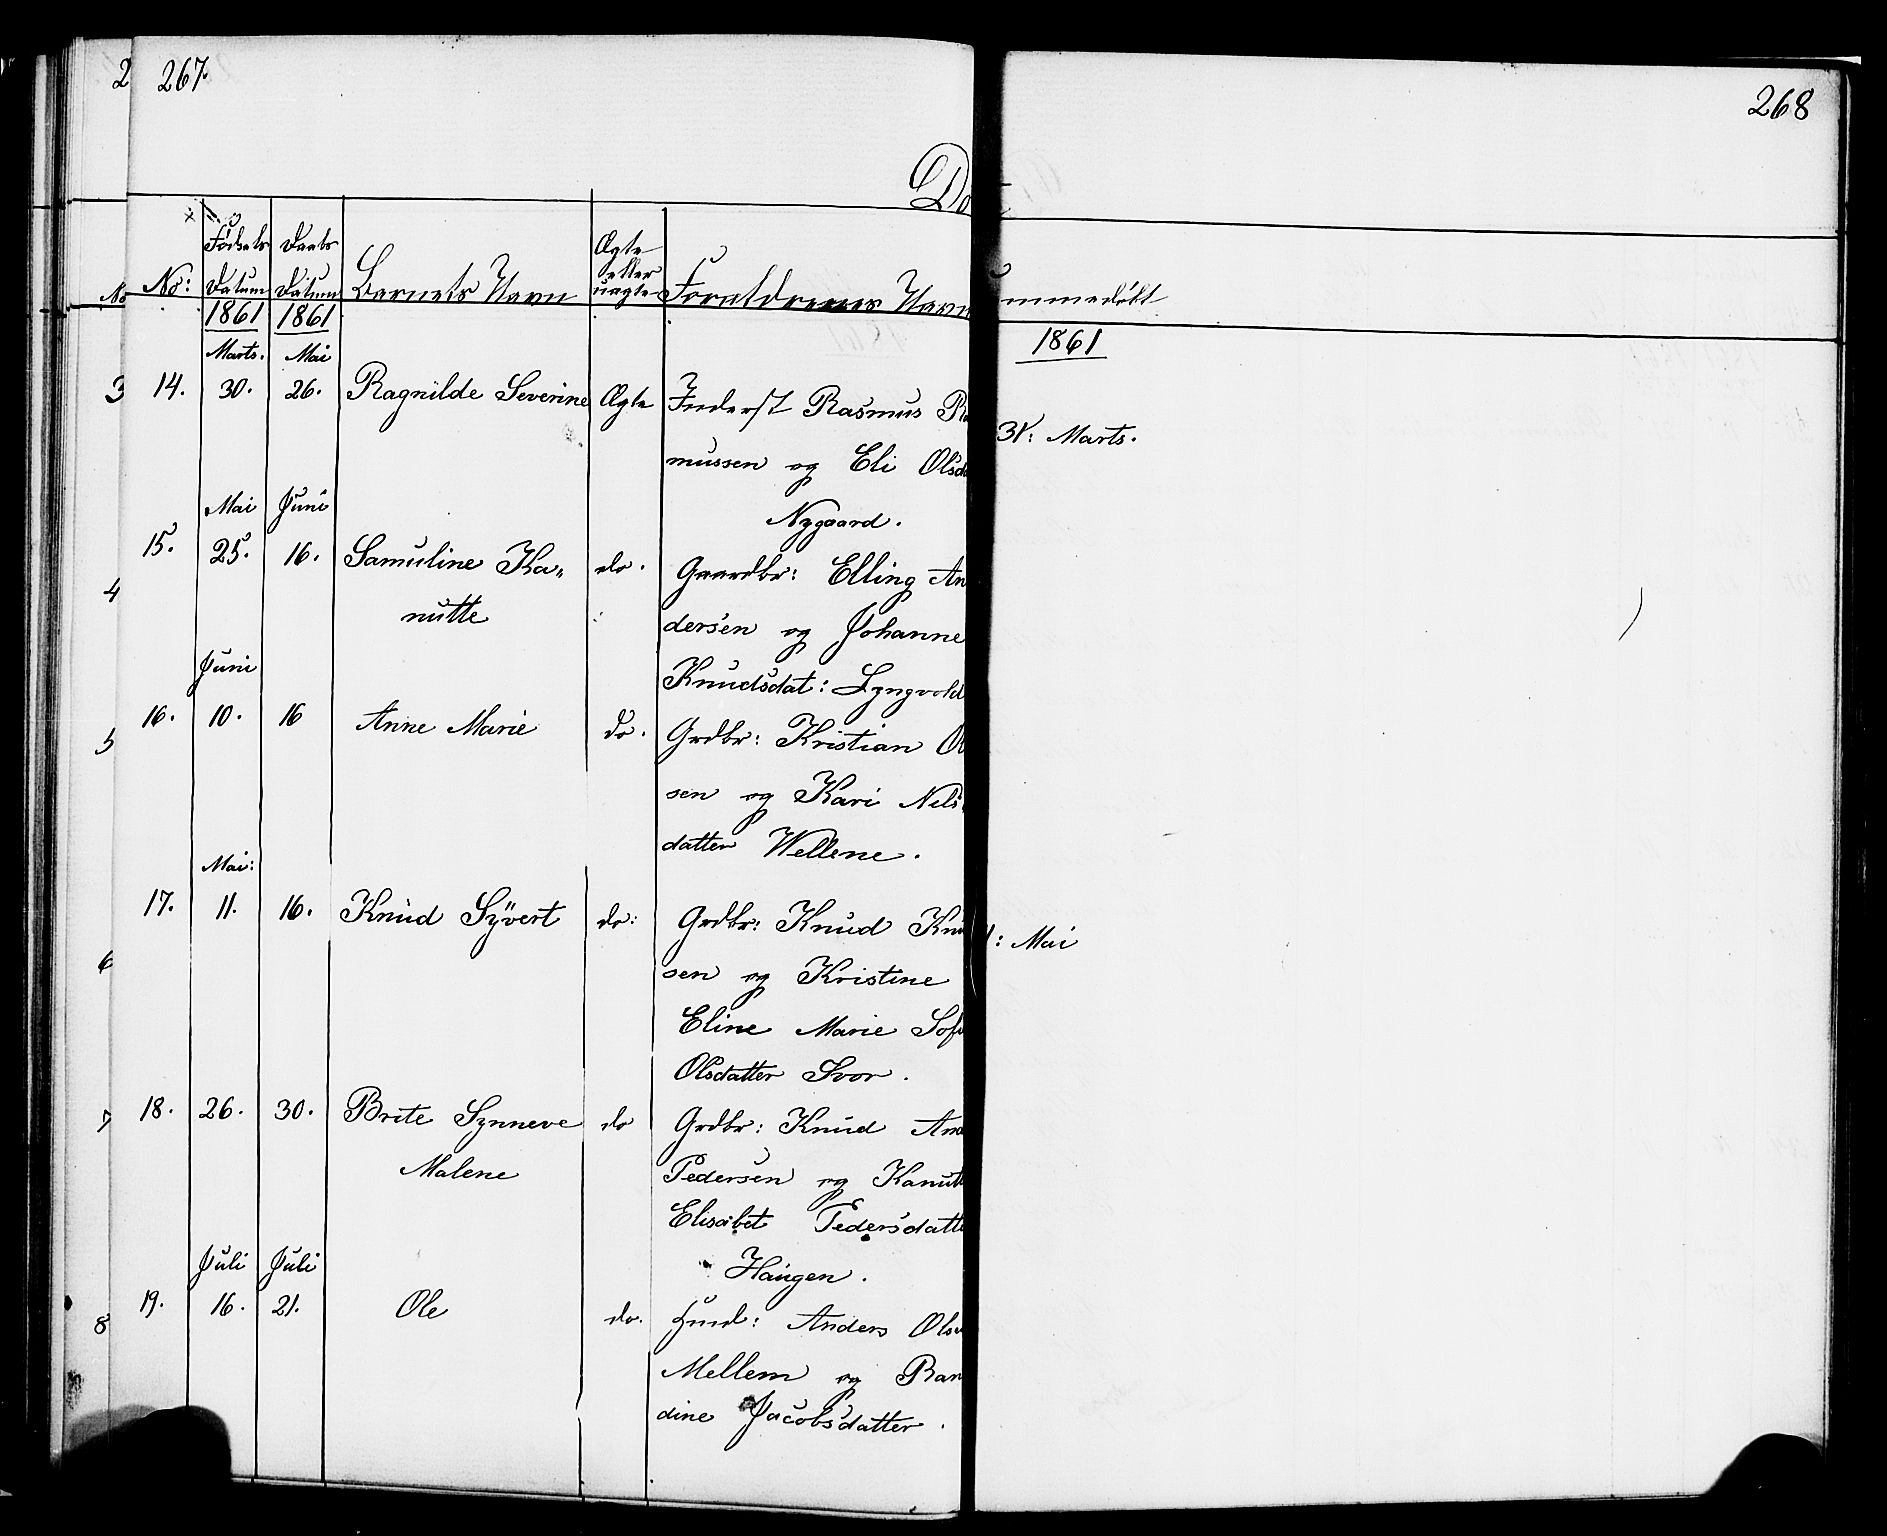 2 267.
268
Do
No: Fødsels Datum Daabs Datum Barnets Navn Ægte eller uægte Forældrenes Navn
mmedøbt
1861 1861
1861
Marts. Mai
3 14. 30. 26. Ragnilde Severine Ægte Inderst Rasmus Ra
31: Marts.
mussen og Eli Olsda
Mai Juni
Nygaard.
15. 25. 16. Samuline Ka„ do. Gaardbr: Elling An
4
nutte dersen og Johanne
Juni
Knudsdat: Lyngvold
16. 10. 16 Anne Marie do. Grdbr: Kristian Ol
5
sen og Kari Nels
datter Wellene.
Mai:
17. 11. 16. Knud Syvert do: Grdbr: Knud Knu
: Mai
6
sen og Kristine
Eline Marie Sof
Olsdatter Svor.
7 18. 26. 30. Brite Synneve do Grdbr: Knud And
Malene Pedersen og Kanutt
Elisabet Pedersdatte
Juli Juli
Haugen.
19. 16. 21. Ole do. Huusd: Anders Olse
8
Mellem og Ran
dine Jacobsdatter.